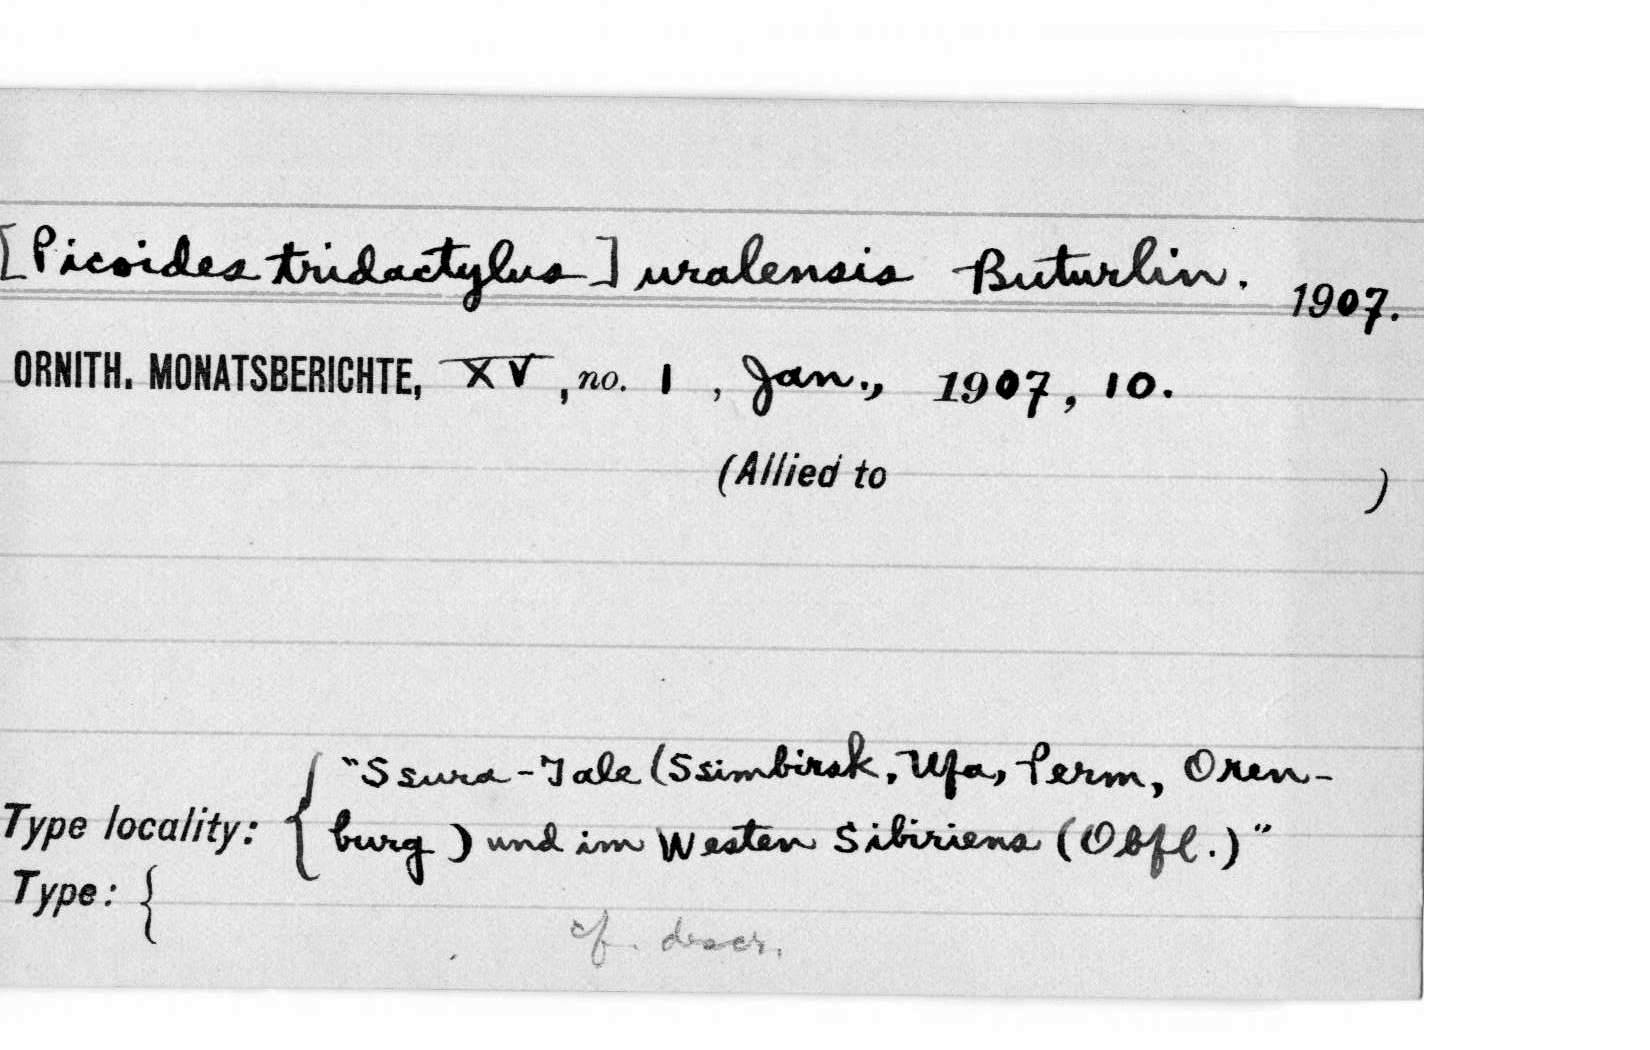 [Picoides tridactylus] uralensis Buturlin. 1907.
ORNITH. MONATSBERICHTE, XV, no. 1, Jan., 1907, 10.
(Allied to )
"Ssura-Tale (Ssimbirsk, Ufa, Perm, Oren-
Type locality: { burg) und im Westen Sibiriens (Obfl.)"
Type: {
cf. descr.